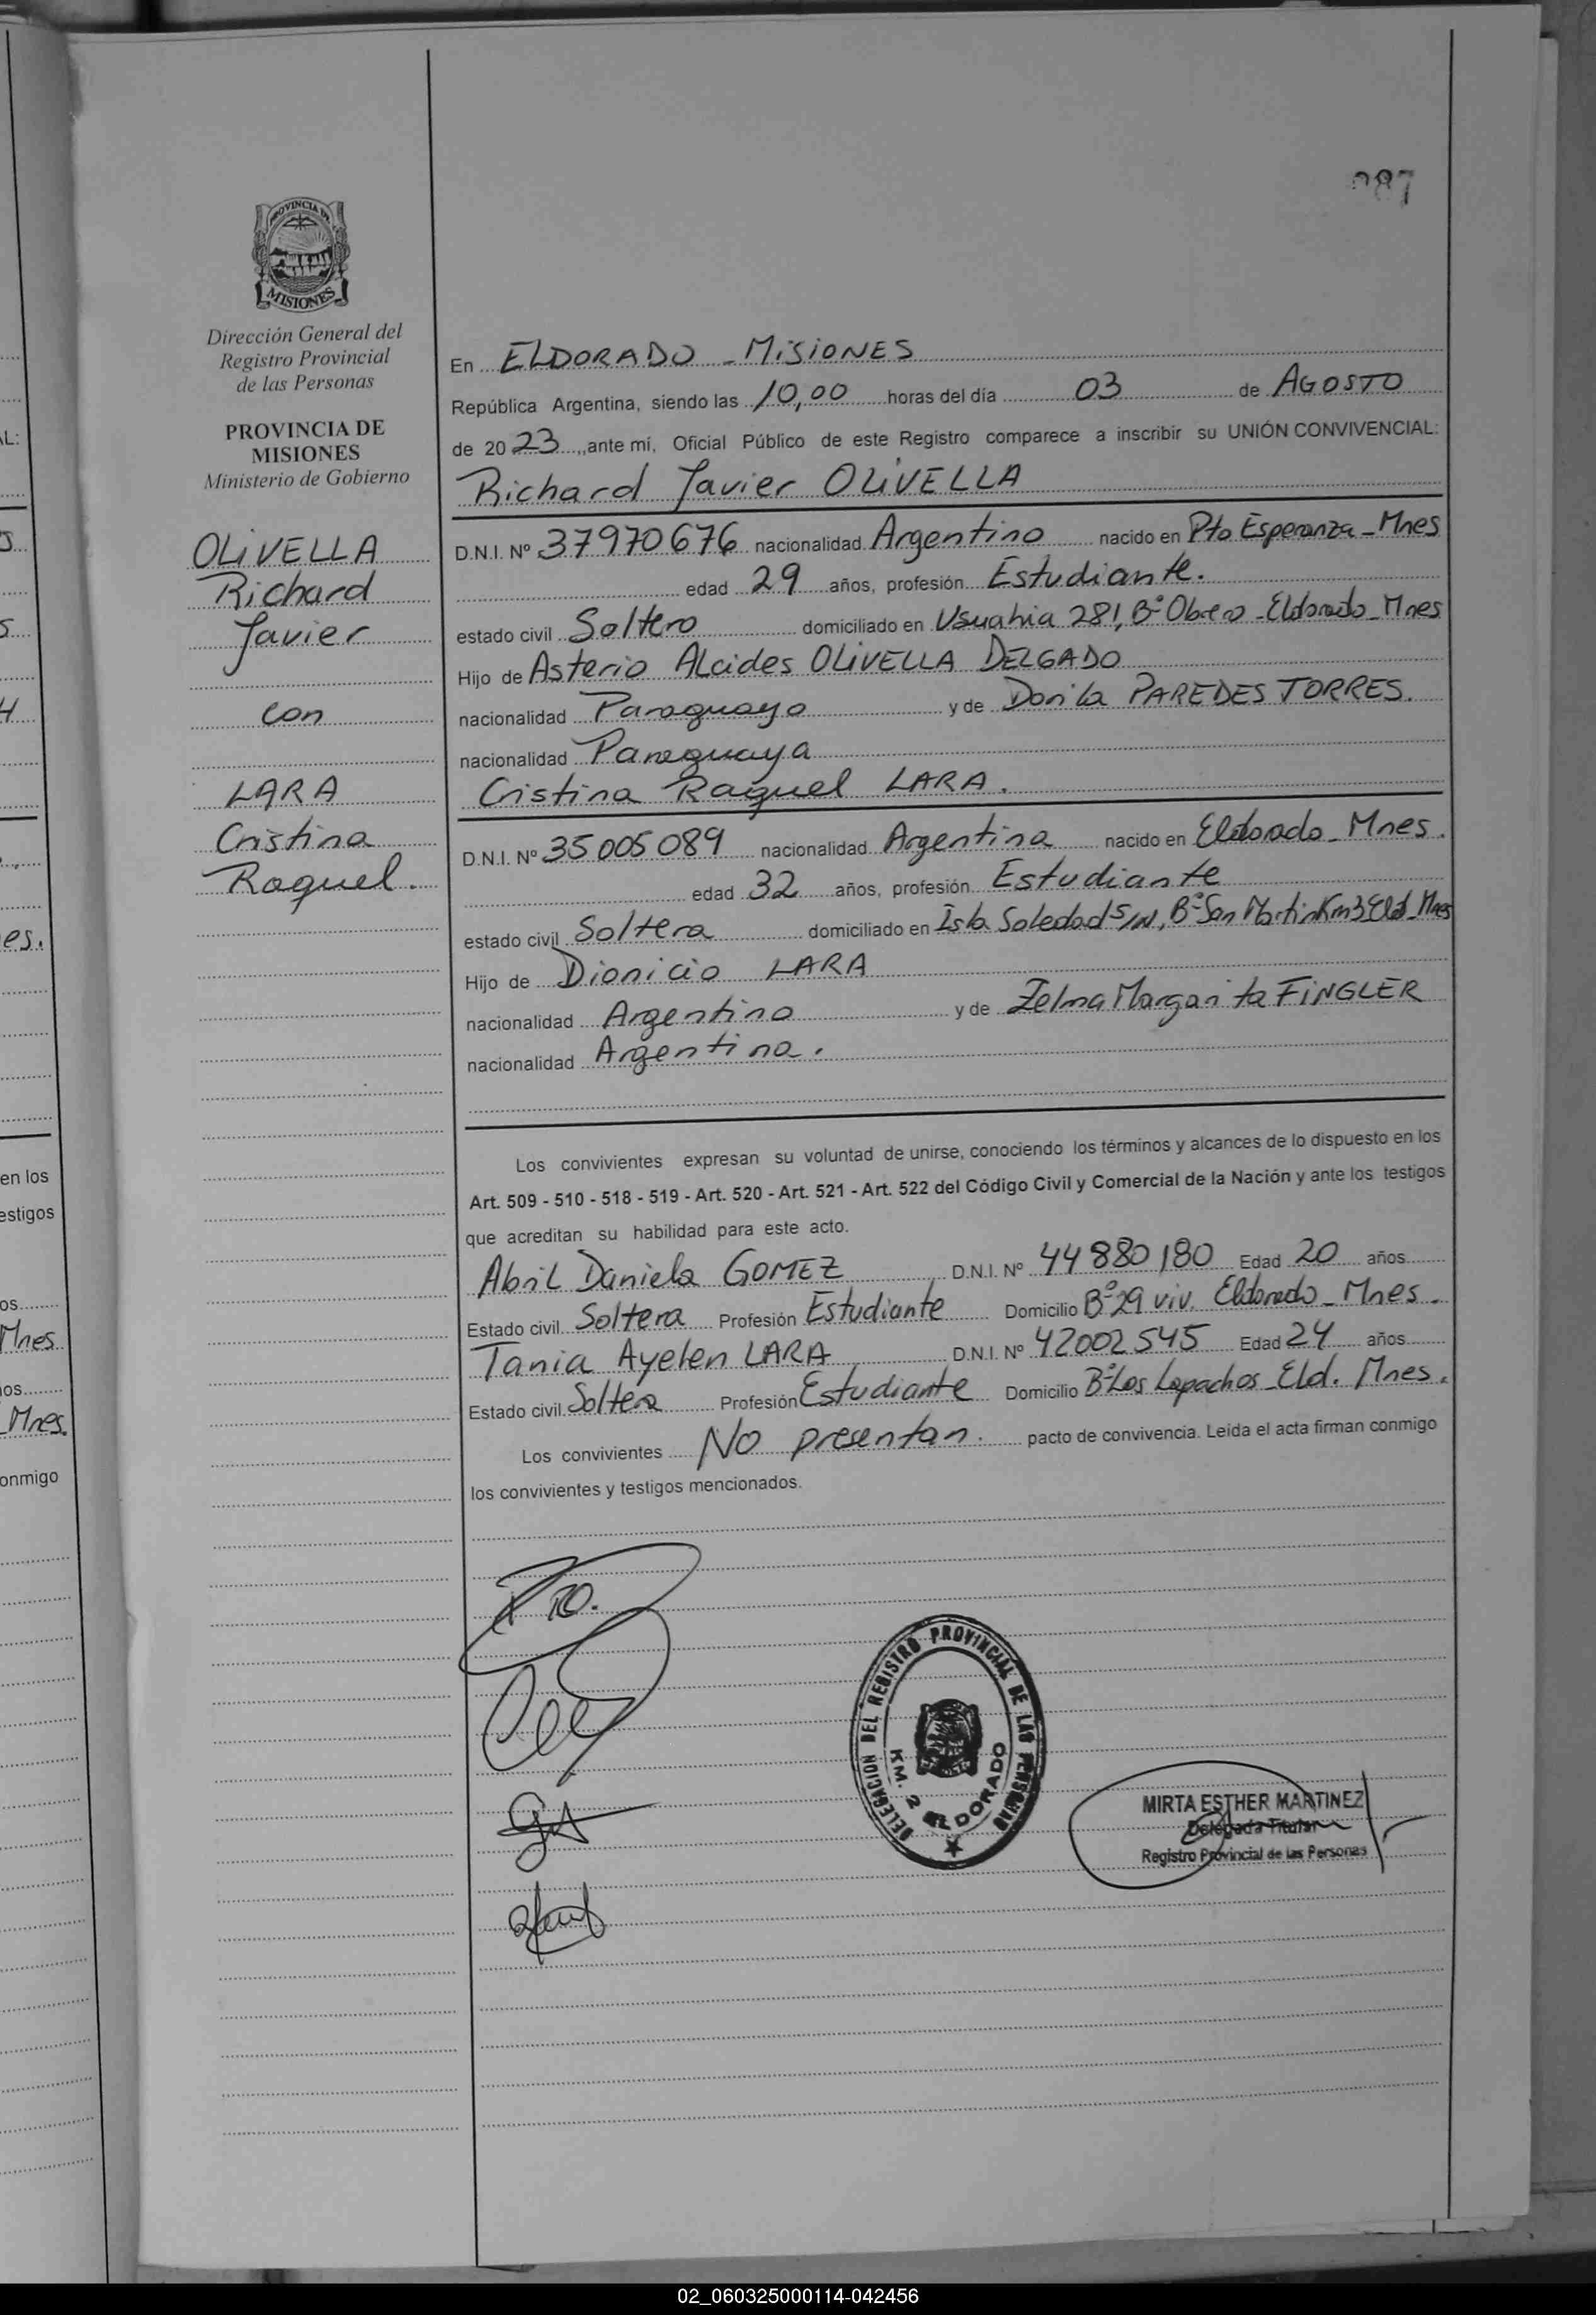 087
PROVINCIA DE
MISIONES
Dirección General del
Registro Provincial
de las Personas
PROVINCIA DE
MISIONES
Ministerio de Gobierno
OLIVELLA
Richard
Javier
con
LARA
Cristina
Raquel.
En ELDORADO - MISIONES
República Argentina, siendo las 10,00 horas del día 03 de AGOSTO
de 20 23, ante mí, Oficial Público de este Registro comparece a inscribir su UNIÓN CONVIVENCIAL:
Richard Javier OLIVELLA
D.N.I. Nº 37970676 nacionalidad Argentino nacido en Pto Esperanza - Mnes
edad 29 años, profesión Estudiante.
estado civil Soltero domiciliado en Usuahia 281, Bº Obrero - Eldorado - Mnes
Hijo de Asterio Alcides OLIVELLA DELGADO
nacionalidad Paraguayo y de Dorila PAREDES TORRES.
nacionalidad Paraguaya
Cristina Raquel LARA.
D.N.I. Nº 35 005 089 nacionalidad Argentina nacido en Eldorado - Mnes.
edad 32 años, profesión Estudiante
estado civil Soltera domiciliado en Isla Soledad S/N, Bº San Martin Km3 Eld - Mnes
Hijo de Dionicio LARA
nacionalidad Argentino y de Zelma Margarita FINGLER
nacionalidad Argentina.
Los convivientes expresan su voluntad de unirse, conociendo los términos y alcances de lo dispuesto en los
Art. 509 - 510 - 518 - 519 - Art. 520 - Art. 521 - Art. 522 del Código Civil y Comercial de la Nación y ante los testigos
que acreditan su habilidad para este acto.
Abril Daniela GOMEZ D.N.I. Nº 44 880 180 Edad 20 años
Estado civil Soltera Profesión Estudiante Domicilio Bº 29 viv. Eldorado - Mnes.
Tania Ayelen LARA D.N.I. Nº 42002545 Edad 24 años
Estado civil Soltera Profesión Estudiante Domicilio Bº Los Lapachos - Eld. Mnes.
Los convivientes No presentan. pacto de convivencia. Leída el acta firman conmigo
los convivientes y testigos mencionados.
DELEGACION DEL REGISTRO PROVINCIAL DE LAS PERSONAS
KM. 2 ELDORADO
MIRTA ESTHER MARTINEZ
Delegada Titular
Registro Provincial de las Personas
02_060325000114-042456